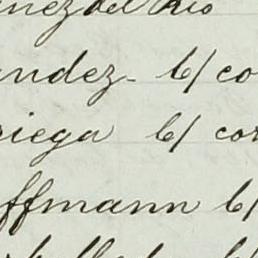 nez del Rio
andez- C/ co
riega C/ cor
ffmann C/